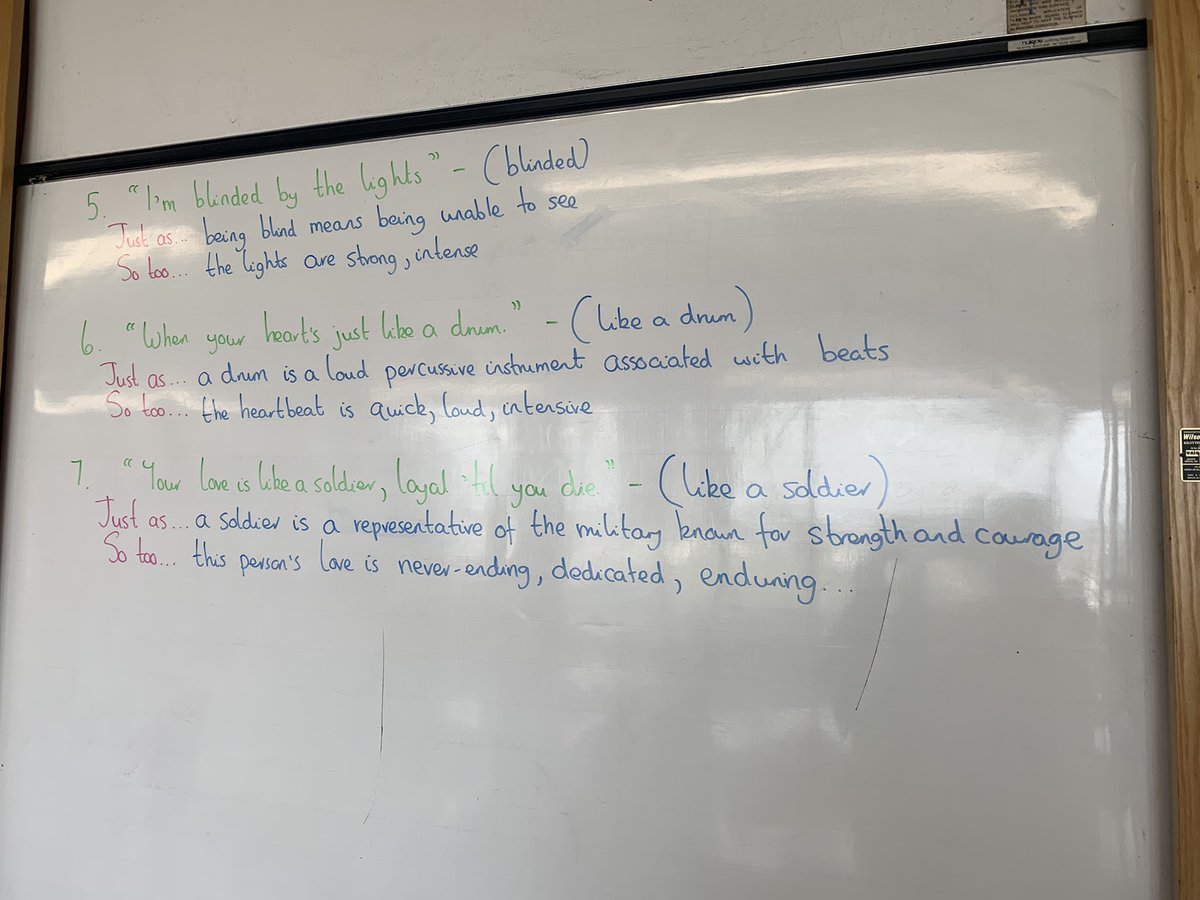 5. "I'm blinded by the lights" - (blinded)
Just as... being blind means being unable to see
So too... the lights are strong, intense
6. "When your heart's just like a drum." - (like a drum)
Just as... a drum is a loud percussive instrument associated with beats
So too... the heartbeat is quick, loud, intensive
7. "Your love is like a soldier, loyal 'til you die." - (like a soldier)
Just as... a soldier is a representative of the military known for strength and courage
So too... this person's love is never-ending, dedicated, enduring...